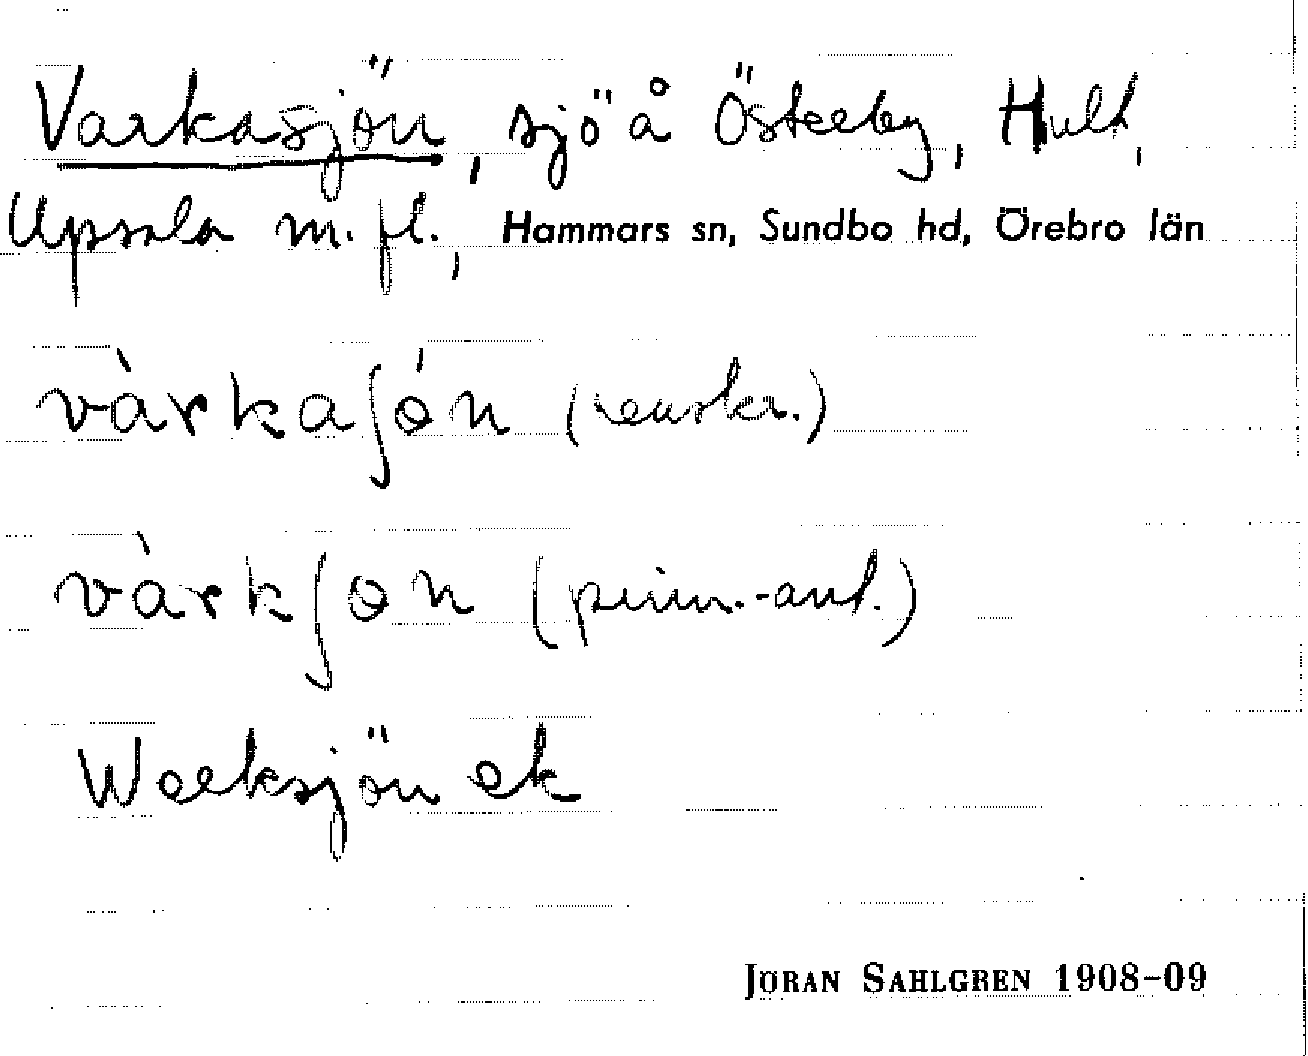 Varkasjön, sjö å Österby, Hult,
Upsala m. fl., Hammars sn, Sundbo hd, Örebro län
vàrkaʃǿn (renskr.)
vàrkʃøn (prim.-ant.)
Werksjön ek
JÖRAN SAHLGREN 1908-09